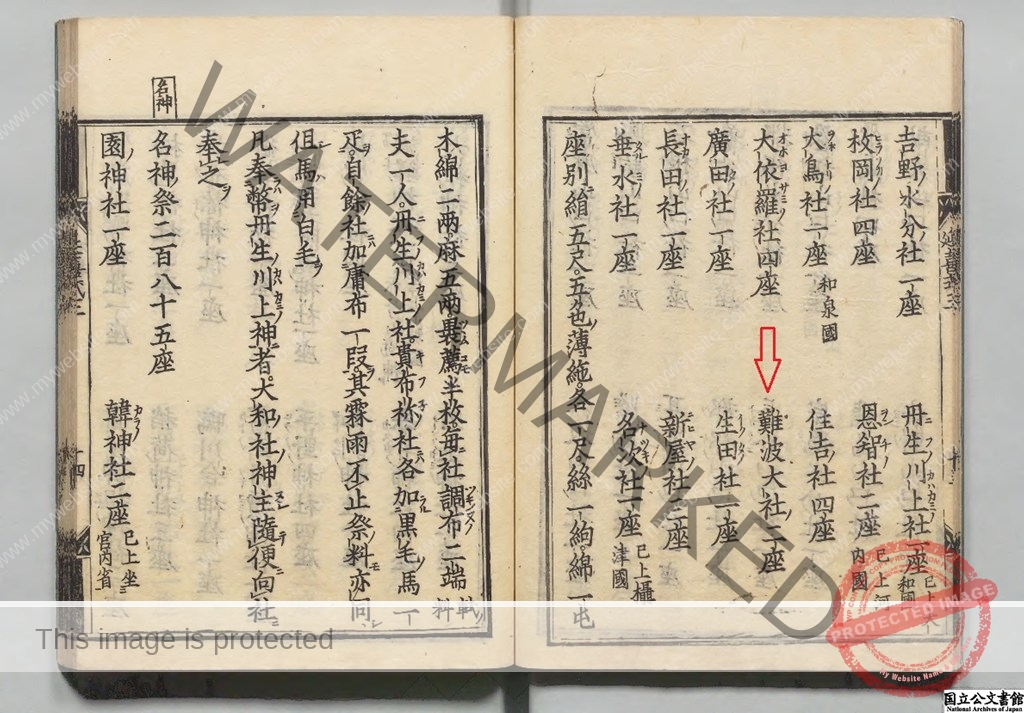 吉野水分社一座
丹生川上社一座 已上大和國
枚岡社四座
恩智社二座 已上河內國
大鳥社一座 和泉國
住吉社四座
大依羅社四座
難波大社二座
廣田社一座
生田社一座
長田社一座
新屋社三座
垂水社一座
名次社一座 已上攝津國
座別絹五尺五色薄絁各一尺絲一絇綿一屯
木綿二兩麻五兩裹薦半枚每社調布二端 軾料
夫一人丹生川上社貴布禰社各加黑毛馬一
疋自餘社加庸布一段其霖雨不止祭料亦同
但馬用白毛
凡奉幣丹生川上神者大和社神主隨使向社
奉之
名神
名神祭二百八十五座
園神社一座
韓神社二座 已上坐宮內省
WATERMARKED
This image is protected
PROTECTED IMAGE
My Website Name
www.mywebsite.com
国立公文書館
National Archives of Japan